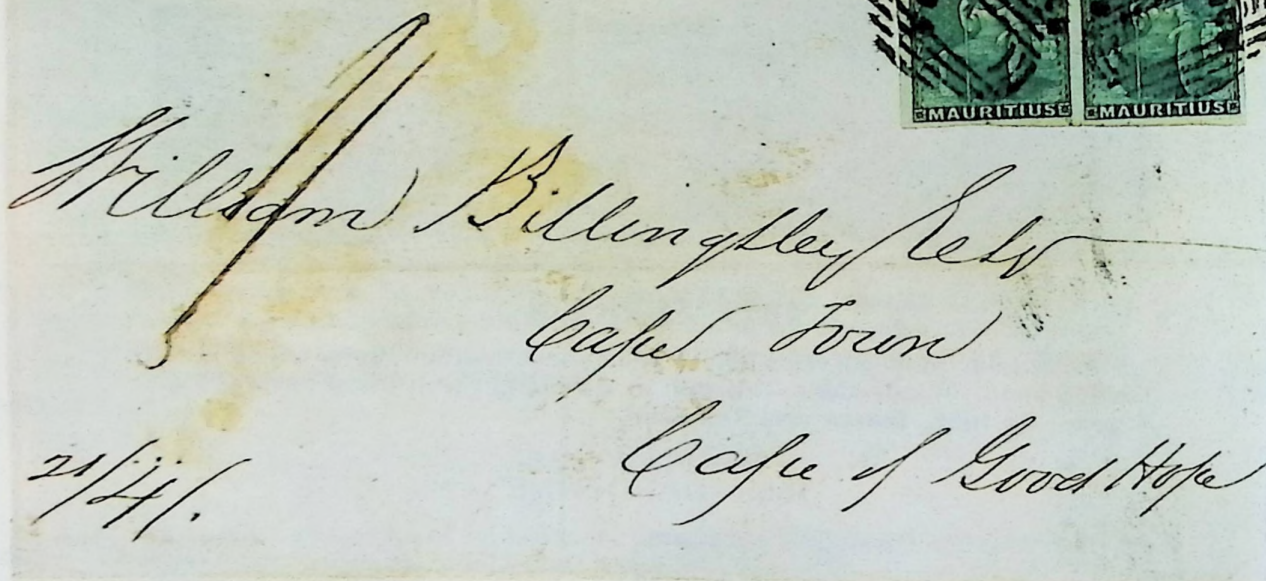 MAURITIUS MAURITIUS
William Billingsley Esqr
Cape Town
Cape of Good Hope